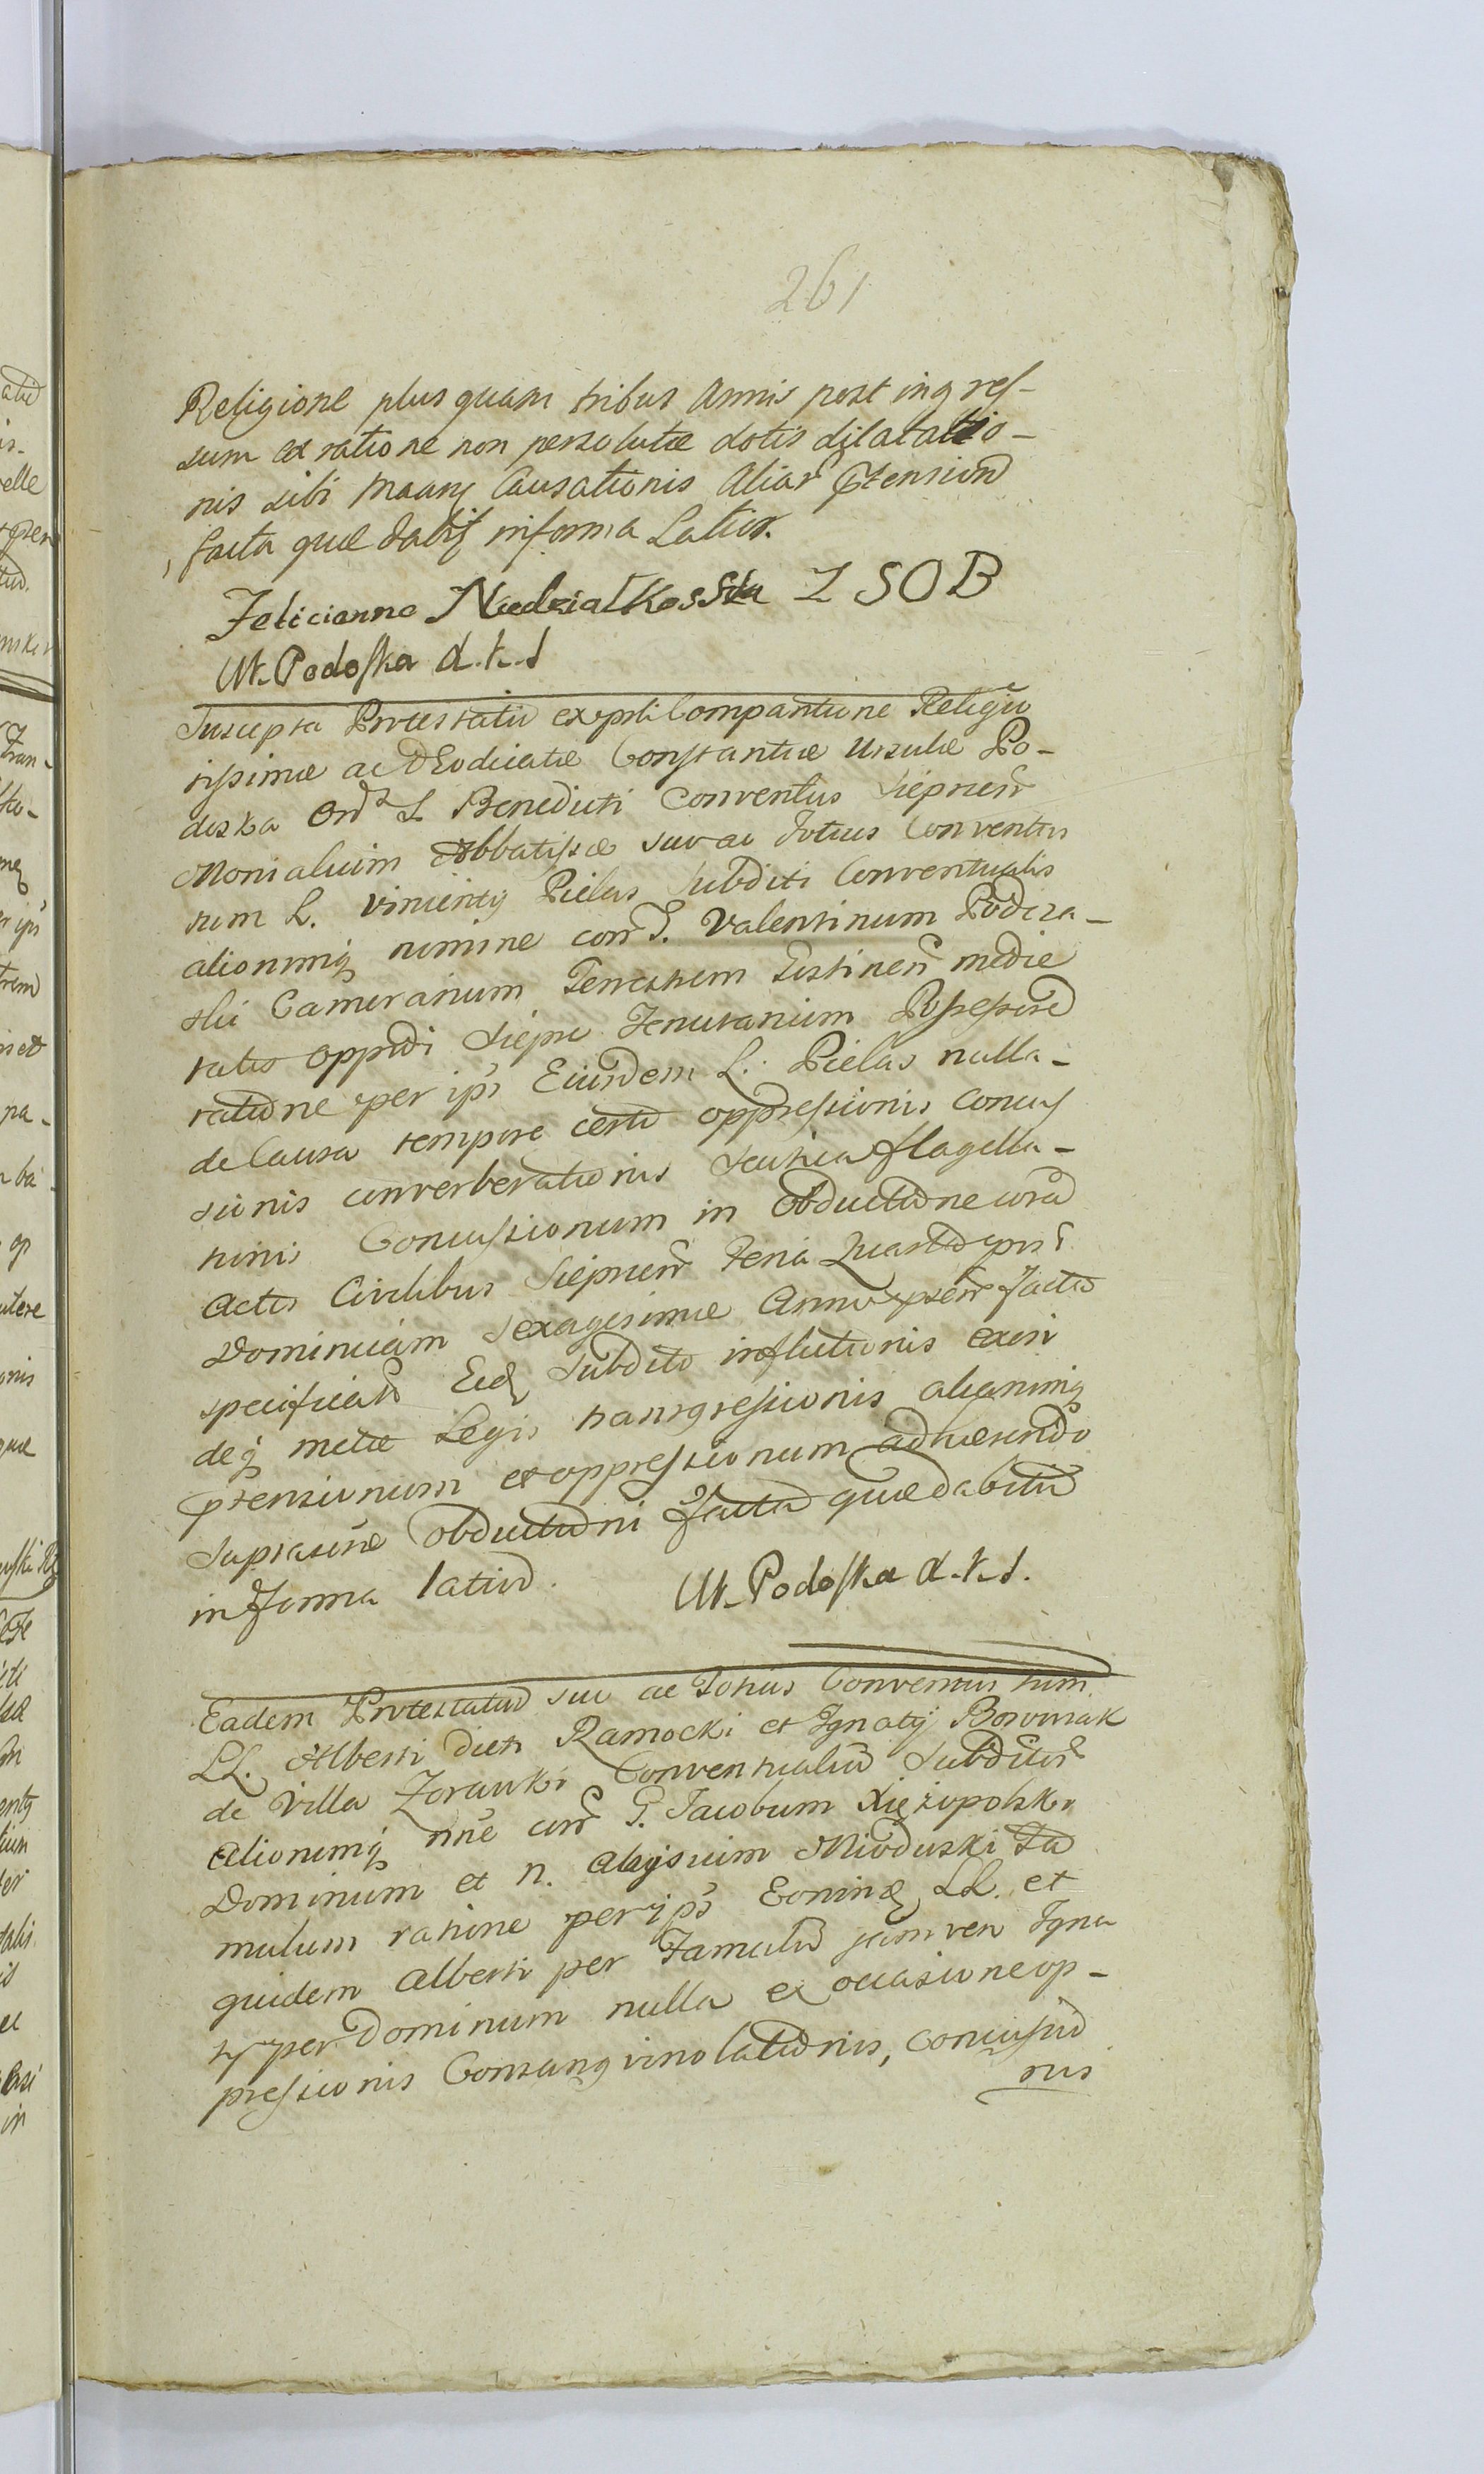 261
Religione plus quam tribus Annis post ingres-
sum ex ratione non persolutae dotis dilatatio-
nis sibi Causationis Aliar Ptension
facta quae dabit in forma Latior.
Felicianna Niedzialkosska Z S O B
M. Podoska d. k. s
Suscepta Protestatio ex Compantione Religio
sissimae ac DEo dicatae Constantiae Ursulae Po-
doska Ord S Benedicti Conventus Siepricen
Monialium Abbatissae suo ac totius Conventus
tum L. Vincenty Pielas Subditi Conventualis
alionumq nomine con G. Valentinum Podcza-
ski Camerarium Terrestrem Gostinen medie
tatis Oppidi Siepre Tenutarium Possessore
ratione per ips Eiusdem L. Pielas nulla-
de Causa tempore certo oppressionis Concus
sionis converberationis scutica flagella-
tionis Concussionum in Obductione cora
Actis Civilibus Siepricen Feria Quarta
Dominicam sexagesimae Anno facta
specificat Subdito inflictionis exin
deq metae Legis transgressionis alianumq
Ptensionum et oppressionum adhaerendo
Suprascre Obductioni facta quae dabitur
in Forma latiod.
M. Podoska d. k. s.
Eadem Protestatio suo ac Totius Conventus tum
LL. Alberti dicti Ramocki et Ignatij Borowiak
de Villa Zorawki Conventualiu Subditor
Alionumq nne con G. Jacobum Xiężopolski
Dominum et N. Aloysium Mioduski Fa
mulum ratione per ips LL. et
quidem Alberti per Famulu jam vero Igna
ty per Dominum nulla ex occasione op-
pressionis Consangvinolationis, Concussio
nis